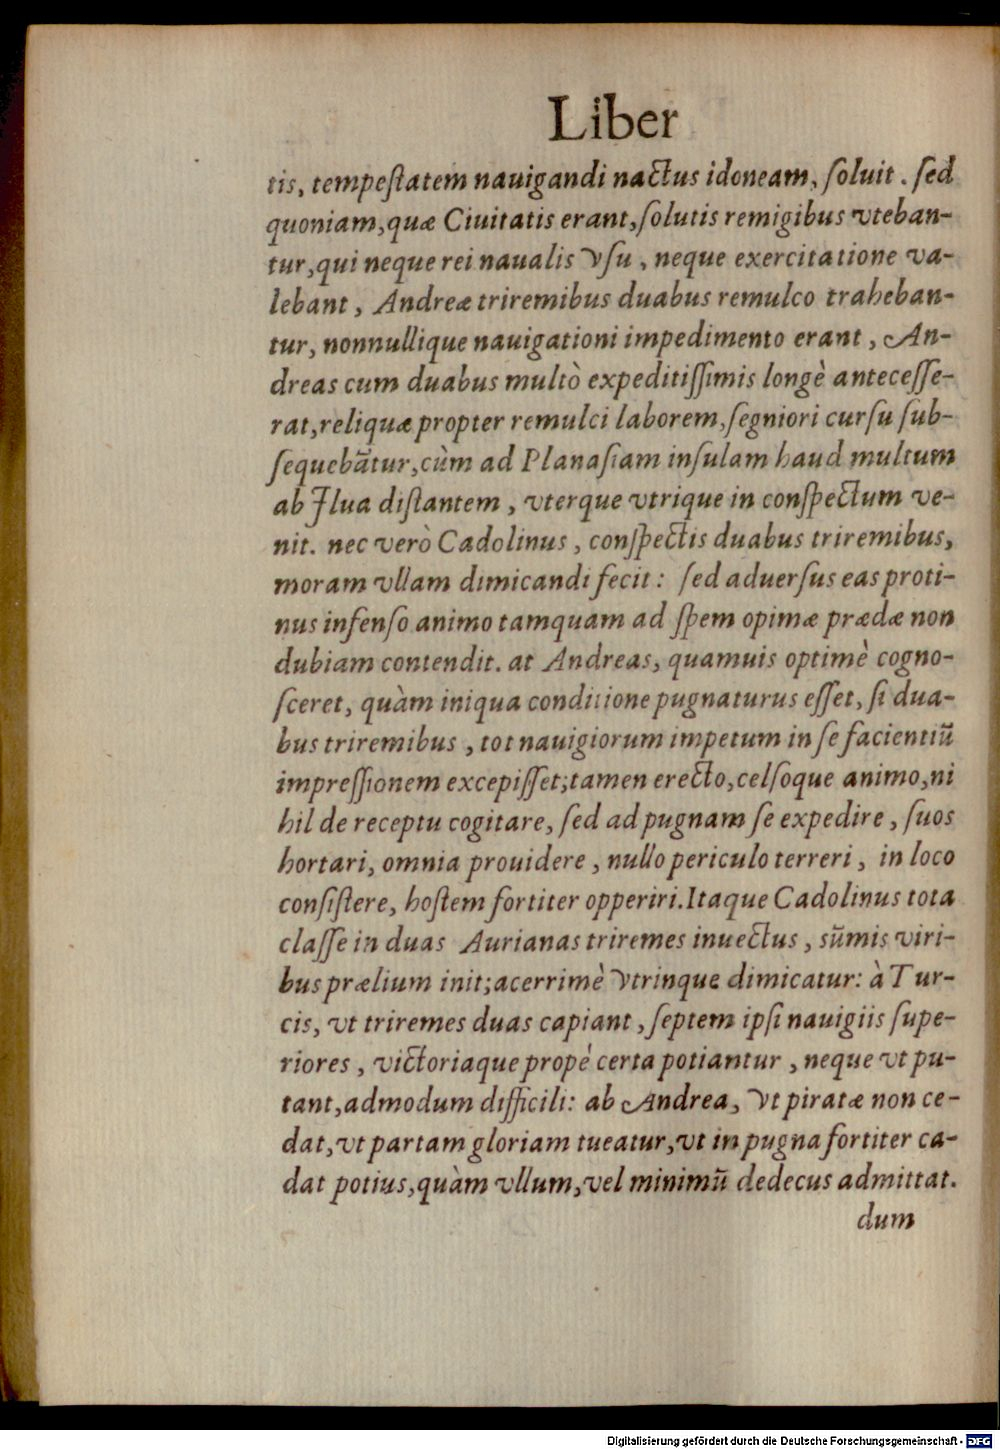 Liber
tis, tempeſtatem nauigandi nactus idoneam, ſoluit. ſed
quoniam, quæ Ciuitatis erant, ſolutis remigibus vteban-
tur, qui neque rei naualis vſu, neque exercitatione va-
lebant, Andreæ triremibus duabus remulco traheban-
tur, nonnullique nauigationi impedimento erant, An-
dreas cum duabus multò expeditiſſimis longè anteceſſe-
rat, reliquæ propter remulci laborem, ſegniori curſu ſub-
ſequebãtur, cùm ad Planaſiam inſulam haud multum
ab Ilua diſtantem, vterque vtrique in conſpectum ve-
nit. nec verò Cadolinus, conſpectis duabus triremibus,
moram vllam dimicandi fecit: ſed aduerſus eas proti-
nus infenſo animo tamquam ad ſpem opimæ prædæ non
dubiam contendit. at Andreas, quamuis optimè cogno-
ſceret, quàm iniqua conditione pugnaturus eſſet, ſi dua-
bus triremibus, tot nauigiorum impetum in ſe facientiũ
impreſſionem excepiſſet; tamen erecto, celſoque animo, ni
hil de receptu cogitare, ſed ad pugnam ſe expedire, ſuos
hortari, omnia prouidere, nullo periculo terreri, in loco
conſiſtere, hoſtem fortiter opperiri. Itaque Cadolinus tota
claſſe in duas Aurianas triremes inuectus, sũmis viri-
bus prælium init; acerrimè vtrinque dimicatur: à Tur-
cis, vt triremes duas capiant, ſeptem ipſi nauigiis ſupe-
riores, victoriaque propè certa potiantur, neque vt pu-
tant, admodum difficili: ab Andrea, vt piratæ non ce-
dat, vt partam gloriam tueatur, vt in pugna fortiter ca-
dat potius, quàm vllum, vel minimũ dedecus admittat.
dum
Digitalisierung gefördert durch die Deutsche Forschungsgemeinschaft - DFG